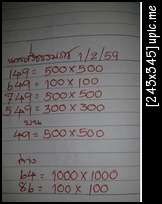 1/2/59
149 = 500 x 500
649 = 100 x 100
749 = 500 x 500
549 = 300 x 300
บน
49 = 500 x 500
ล่าง
64 = 1000 x 1000
86 = 100 x 100
[243x345]upic.me